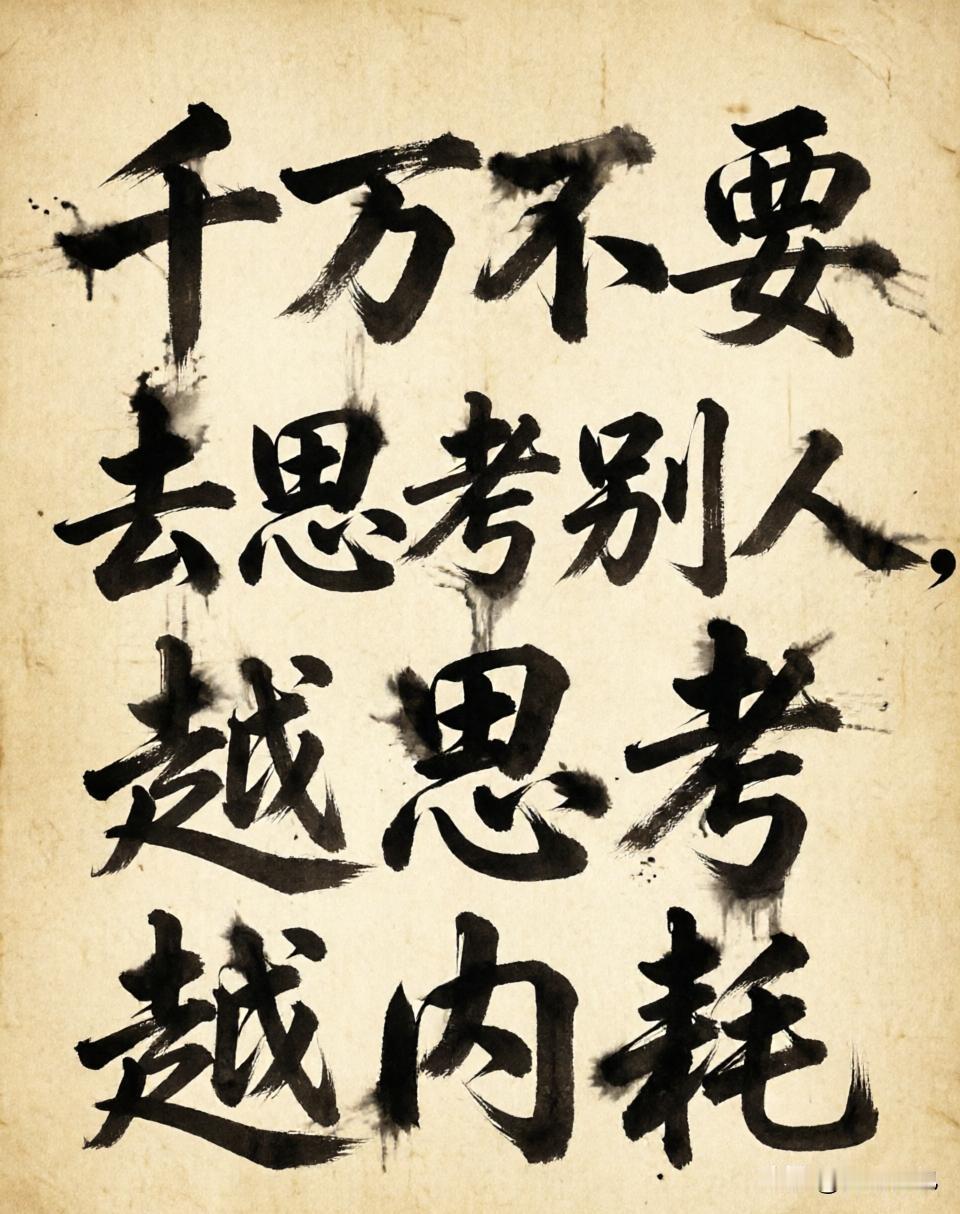 千万不要
去思考别人，
越思考
越内耗